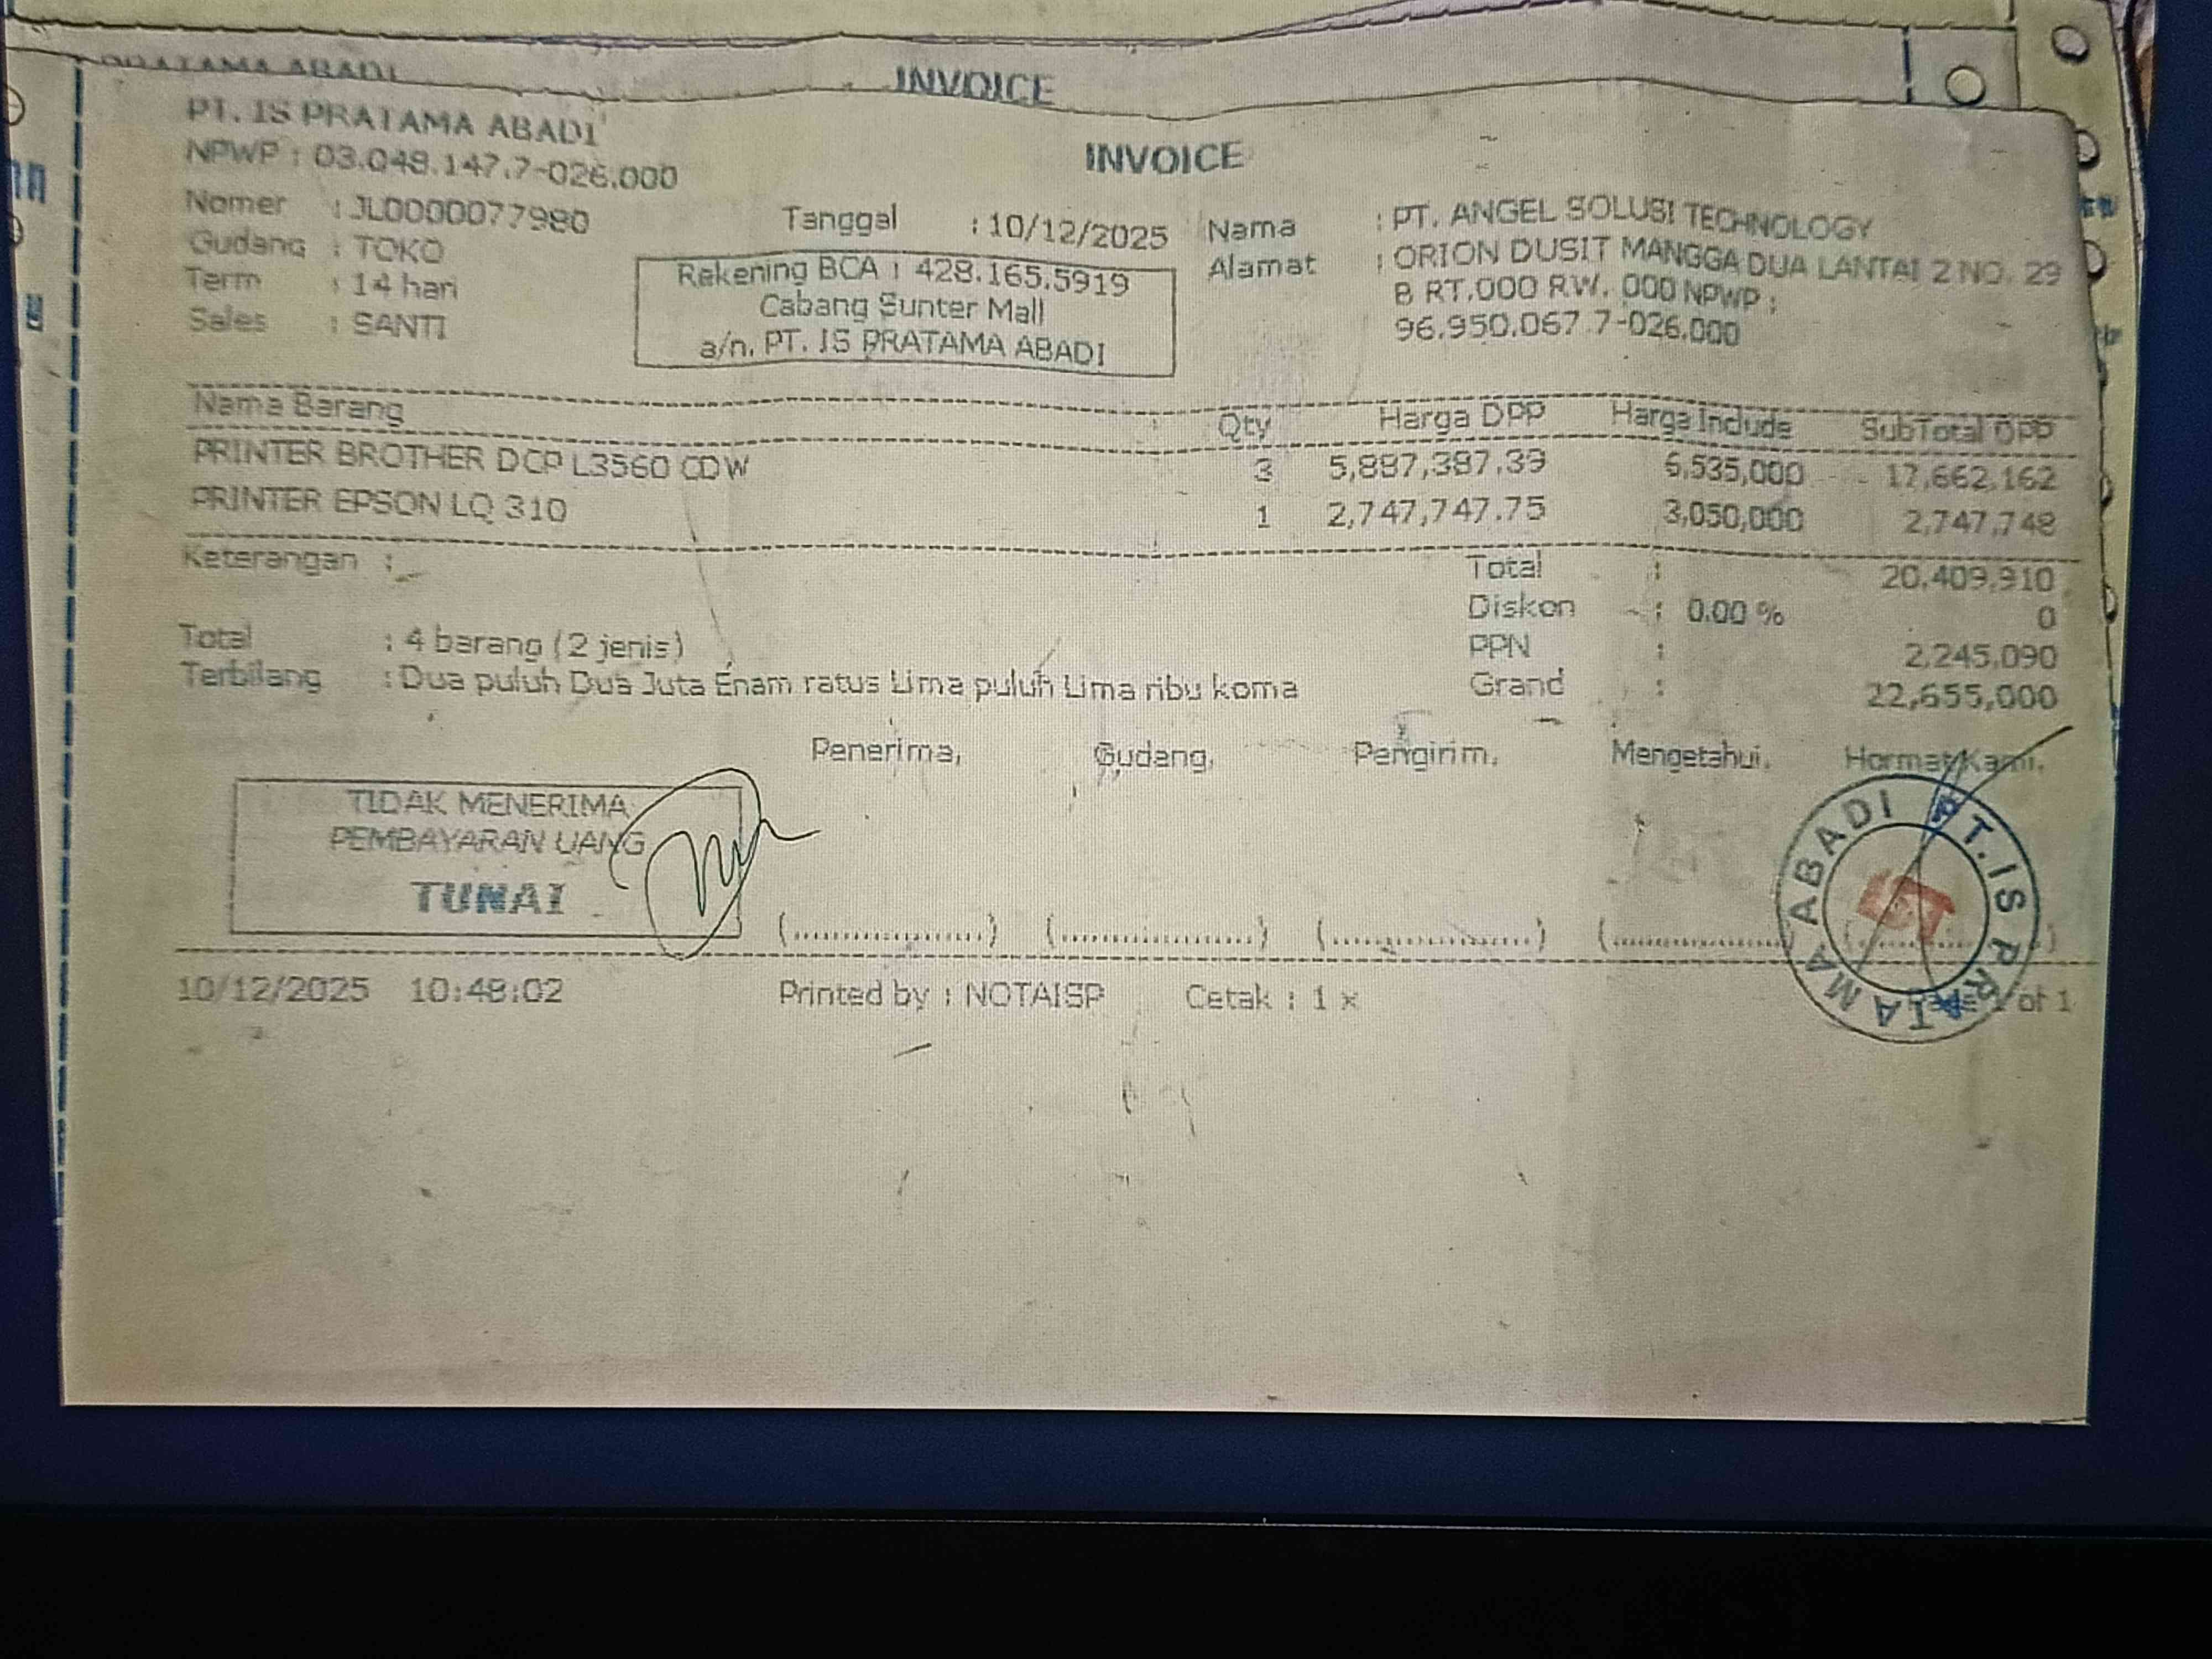 INVOICE
PT. IS PRATAMA ABADI
INVOICE
NPWP : 03.048.147.7-026.000
Nomer : JL0000077980
Tanggal : 10/12/2025
Nama : PT. ANGEL SOLUSI TECHNOLOGY
Gudang : TOKO
Alamat : ORION DUSIT MANGGA DUA LANTAI 2 NO. 29
B RT.000 RW. 000 NPWP :
96.950.067.7-026.000
Term : 14 hari
Sales : SANTI
Rekening BCA : 428.165.5919
Cabang Sunter Mall
a/n. PT. IS PRATAMA ABADI
Nama Barang Qty Harga DPP Harga Include SubTotal DPP
PRINTER BROTHER DCP L3560 CDW 3 5,887,387.39 6,535,000 17,662,162
PRINTER EPSON LQ 310 1 2,747,747.75 3,050,000 2,747,748
Keterangan :
Total : 20,409,910
Diskon : 0.00 % 0
PPN : 2,245,090
Grand : 22,655,000
Total : 4 barang (2 jenis)
Terbilang : Dua puluh Dua Juta Enam ratus Lima puluh Lima ribu koma
Penerima, Gudang, Pengirim, Mengetahui, Hormat Kami,
TIDAK MENERIMA
PEMBAYARAN UANG
TUNAI
(....................) (....................) (....................) (....................
PT. IS PRATAMA ABADI
10/12/2025 10:48:02 Printed by : NOTAISP Cetak : 1 x of 1